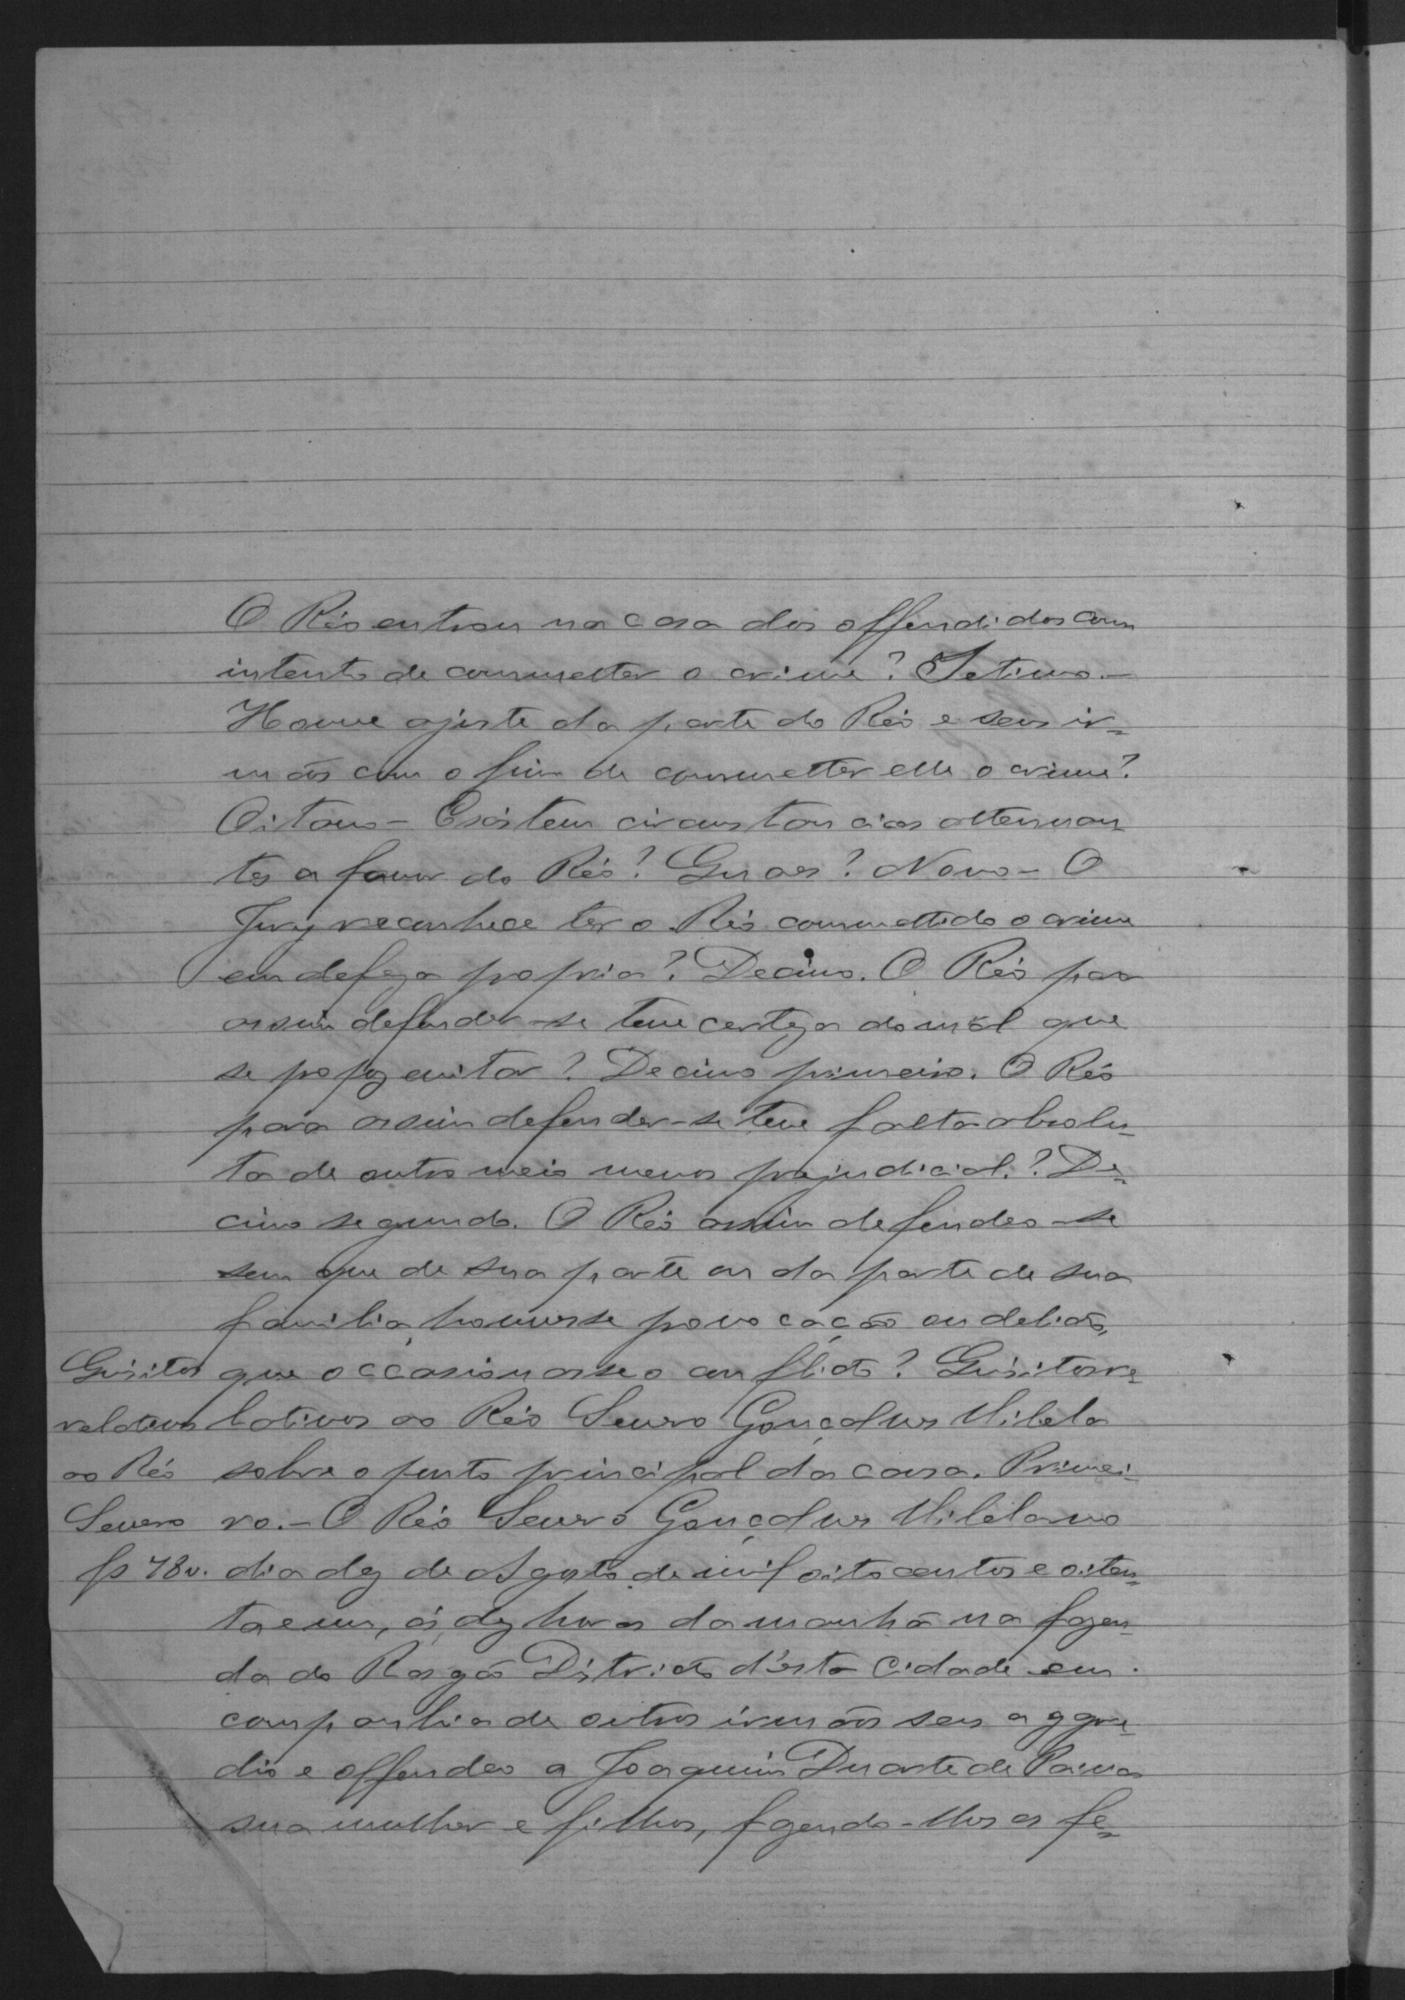 O Réo entrou na casa dos offendidos com
intento de commetter o crime? Setimo.-
Houve ajuste da parte do Réo e seus ir=
mãos com o fim de commetter elle o crime?
Oitavo - Existem circunstancias attenuan
tes a favor do Réo? Quaes? Nono - O
Jury reconhece ter o Réo commettido o crime
em defeza propria? Decimo. O Réo para
assim defender-se teve certeza do mal que
se propoz evitar? Decimo primeiro. O Réo
para assim defender-se teve falta absolu=
ta de outro meio menos prejudicial.? De=
cimo segundo. O Réo assim defendeo-se
sem que de sua parte ou da parte de sua
familia, houvesse provocação ou delicto,
que occasionasse o conflicto? Quisitos re=
lativos ao Réo Severo Gonçalves Vilela
sobre o ponto principal da causa. Primei=
ro.- O Réo Severo Gonçalves Vilela no
dia dez de Agosto de mil oito centos e oiten=
ta e um, ás dez horas da manhã na fazen=
da do Rasgão Districto d'esta Cidade em
companhia de outros irmãos seus aggre=
dio e offendeo a Joaquim Duarte de Paiva
sua mulher e filhos, fazendo-lhes as fe=
Quisitos
relativos
ao Réo
Severo
fs 78v.